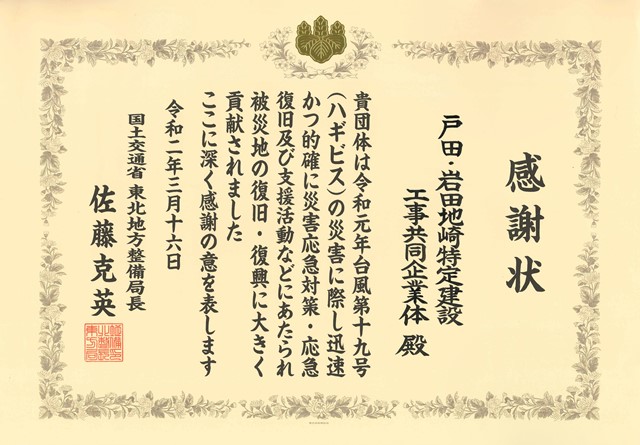 感謝状
戸田・岩田地崎特定建設
工事共同企業体 殿
貴団体は令和元年台風第十九号
(ハギビス)の災害に際し迅速
かつ的確に災害応急対策・応急
復旧及び支援活動などにあたられ
被災地の復旧・復興に大きく
貢献されました
ここに深く感謝の意を表します
令和二年三月十六日
国土交通省 東北地方整備局長
佐藤克英